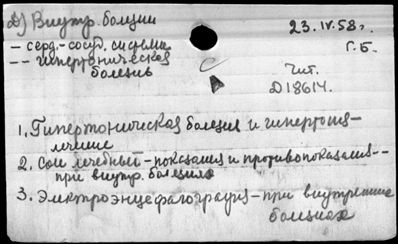 Д) Внутр. болезни
23.IV.58г.
– серд.-сосуд. системы
Г. Б.
-- гипертоническая
болезнь
Чит.
D18614.
1. Гипертоническая болезнь и гипертония –
лечение
2. Сон лечебный – показания и противопоказания –
при внутр. болезнях
3. Электроэнцефалография – при внутренних
болезнях